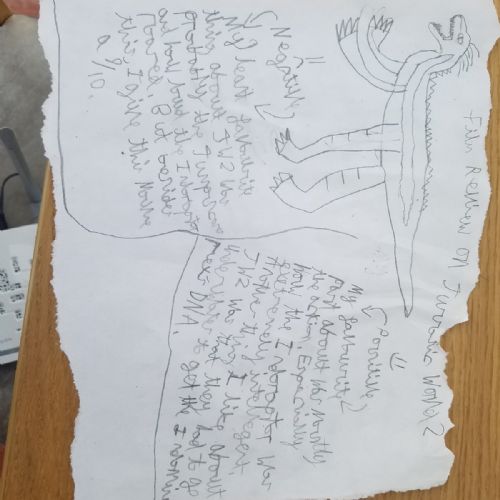 Film Review on Jurrasic World 2
(Positive)
My favourite
part about was mostly
the action. Especially
how the Indoraptor was
extremely intellegent.
Another thing I like about
JW2 was that they had to go
to get the Indomin
rex's DNA.
(Negative)
My least favourite
this about JW2 was
probably the
and how bad the Indorapt
roared. But beside
this, I give this Movie
a 9/10.